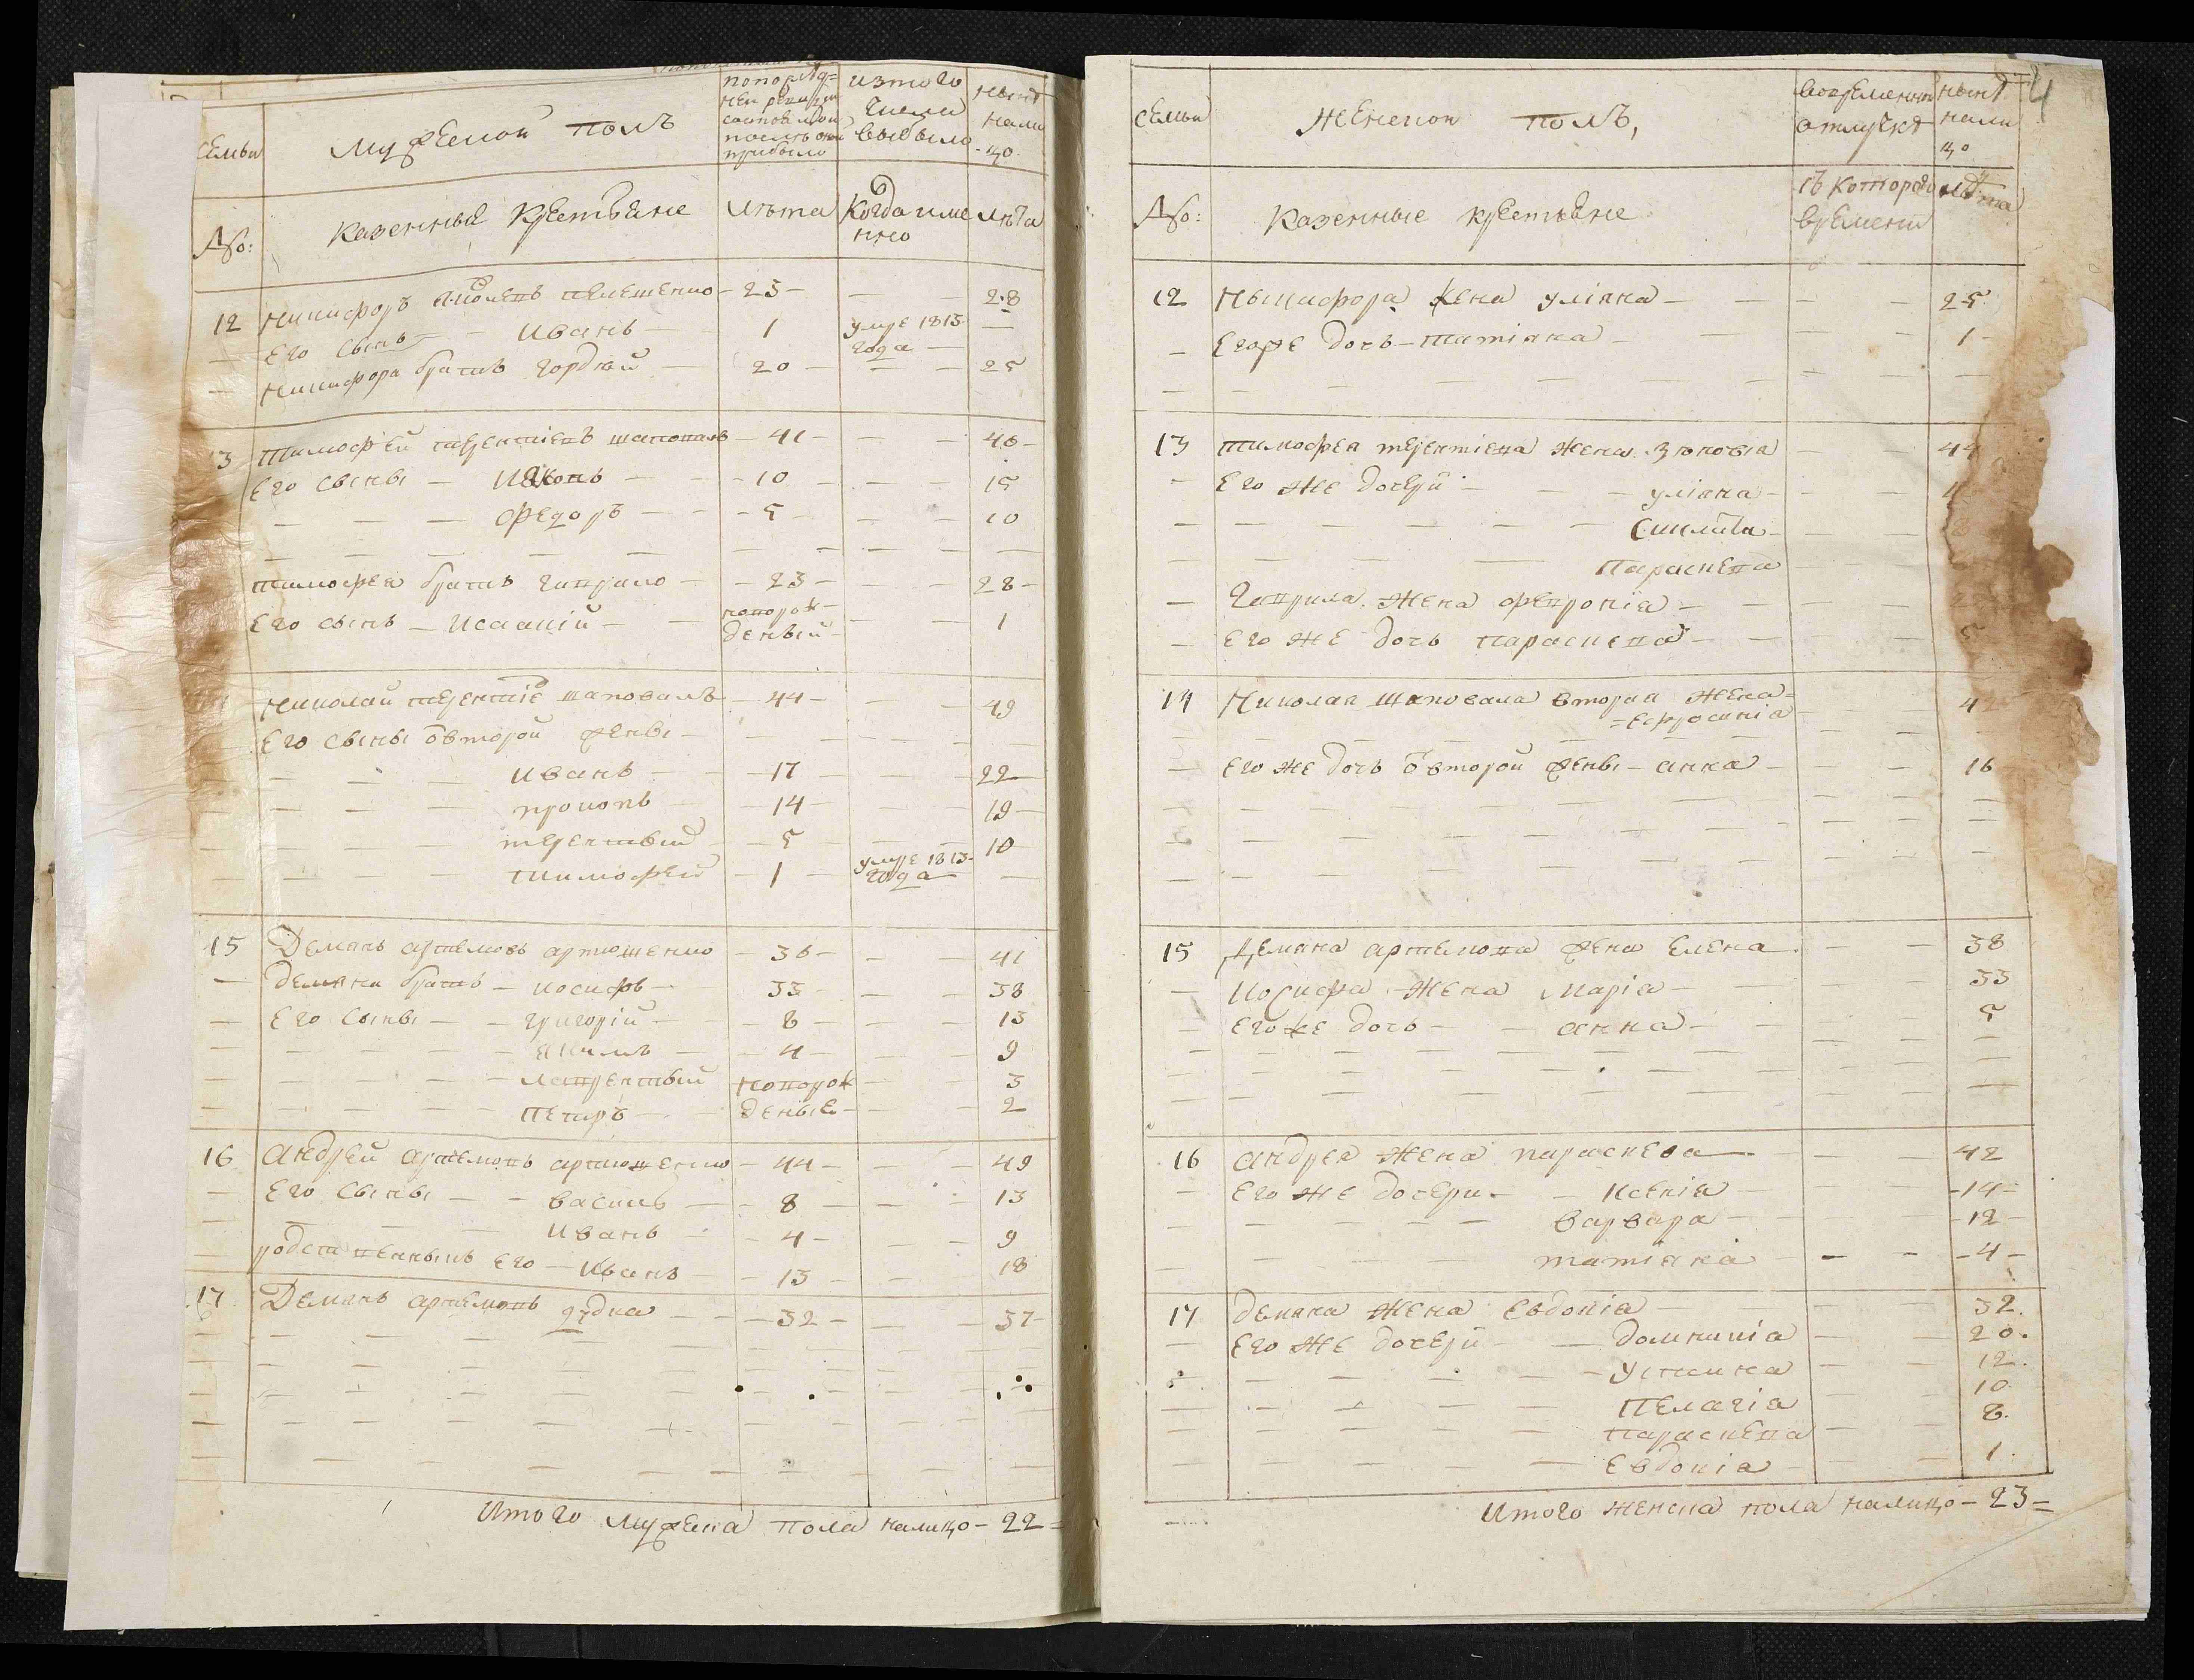 семьи
мужеской полъ
попослѣд=
ней ревизіи
состояло и
послѣ оной
прибыло
изтого
числа
выбыло
нынѣ
нали
цо
№:
казенные крестьяне
лѣта
Когда име
нно
лѣта
12 Никифоръ Яковлевъ пелешенко - 23 - 28
Его сынъ - Иванъ - 1 умре 1813 года
Никифора братъ гордѣй - 20 - 25
3 тимофей терентіевъ шаповалъ - 41 - 46
Его сыны - Иаковъ - 10 - 15
федоръ - 5 - 10
тимофея братъ гаврило - 23 - 28
Его сынъ - Исаакій - новорож
денный - 1
Николай терентіе шаповалъ - 44 - 49
Его сыны от второй жены
Иванъ - 17 - 22
прокопъ - 14 - 19
терентьий - 5 - 10
тимофей - 1 - умре 1813 года
15 Демянъ артемовъ артюшенко - 36 - 41
демяна братъ - иосифъ - 33 - 38
Его сыны - григорій - 8 - 13
якимъ - 4 - 9
лаврентьий новорож 3
петръ - денные - 2
16 андрей артемовъ артюшенко - 44 - 49
Его сыны - василь - 8 - 13
Иванъ - 4 - 9
родственникъ Его - Иванъ - 13 - 18
17 Демянъ артемовъ - 32 - 37
Итого мужеска пола налицо - 22 =
4
семьи
женской полъ,
вовременной
отлучкѣ
нынѣ
нали
цо
№:
казенные крестьяне
съ котораго
времени
лѣта
12 Никифора жена уліяна - 25
Егоже дочь - татіяна - 1
13 тимофея терентіева жена зѣновія 44
Его же дочери - уліяна
Синклита
Параскева
гаврила жена февронія
Его же дочь параскева
14 Николая шаповала вторая жена =
= ефросинія 4
Его же дочь от второй жены - анна - 16
15 Демяна артемова жена Елена - 38
Иосифа жена марія - 33
Егоже дочь - анна - 5
16 андрея жена параскева - 42
Его же дочери - Ксенія - 14 -
варвара - 12 -
татіяна - 4 -
17 демяна жена Евдокія 32.
Его же дочери - домникія 20.
устина 12.
Пелагія 10.
параскева 8.
Евдокія 1.
Итого женска пола налицо - 23 =